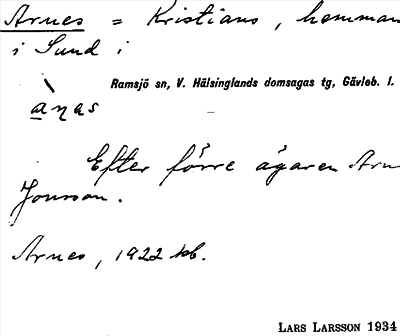 Arnes = Kristians, hemman
i Sund i
Ramsjö sn, V. Hälsinglands domsagas tg, Gävleb. l.
aŋas
Efter förre ägaren Arn
Jonsson.
Arnes, 1922 kb.
LARS LARSSON 1934